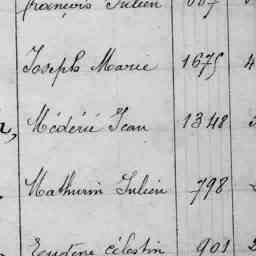 François Julien 667
Joseph Marie 1675 4
Médéric Jean 1348
Mathurin Julien 798
Eugène Célestin 901 2